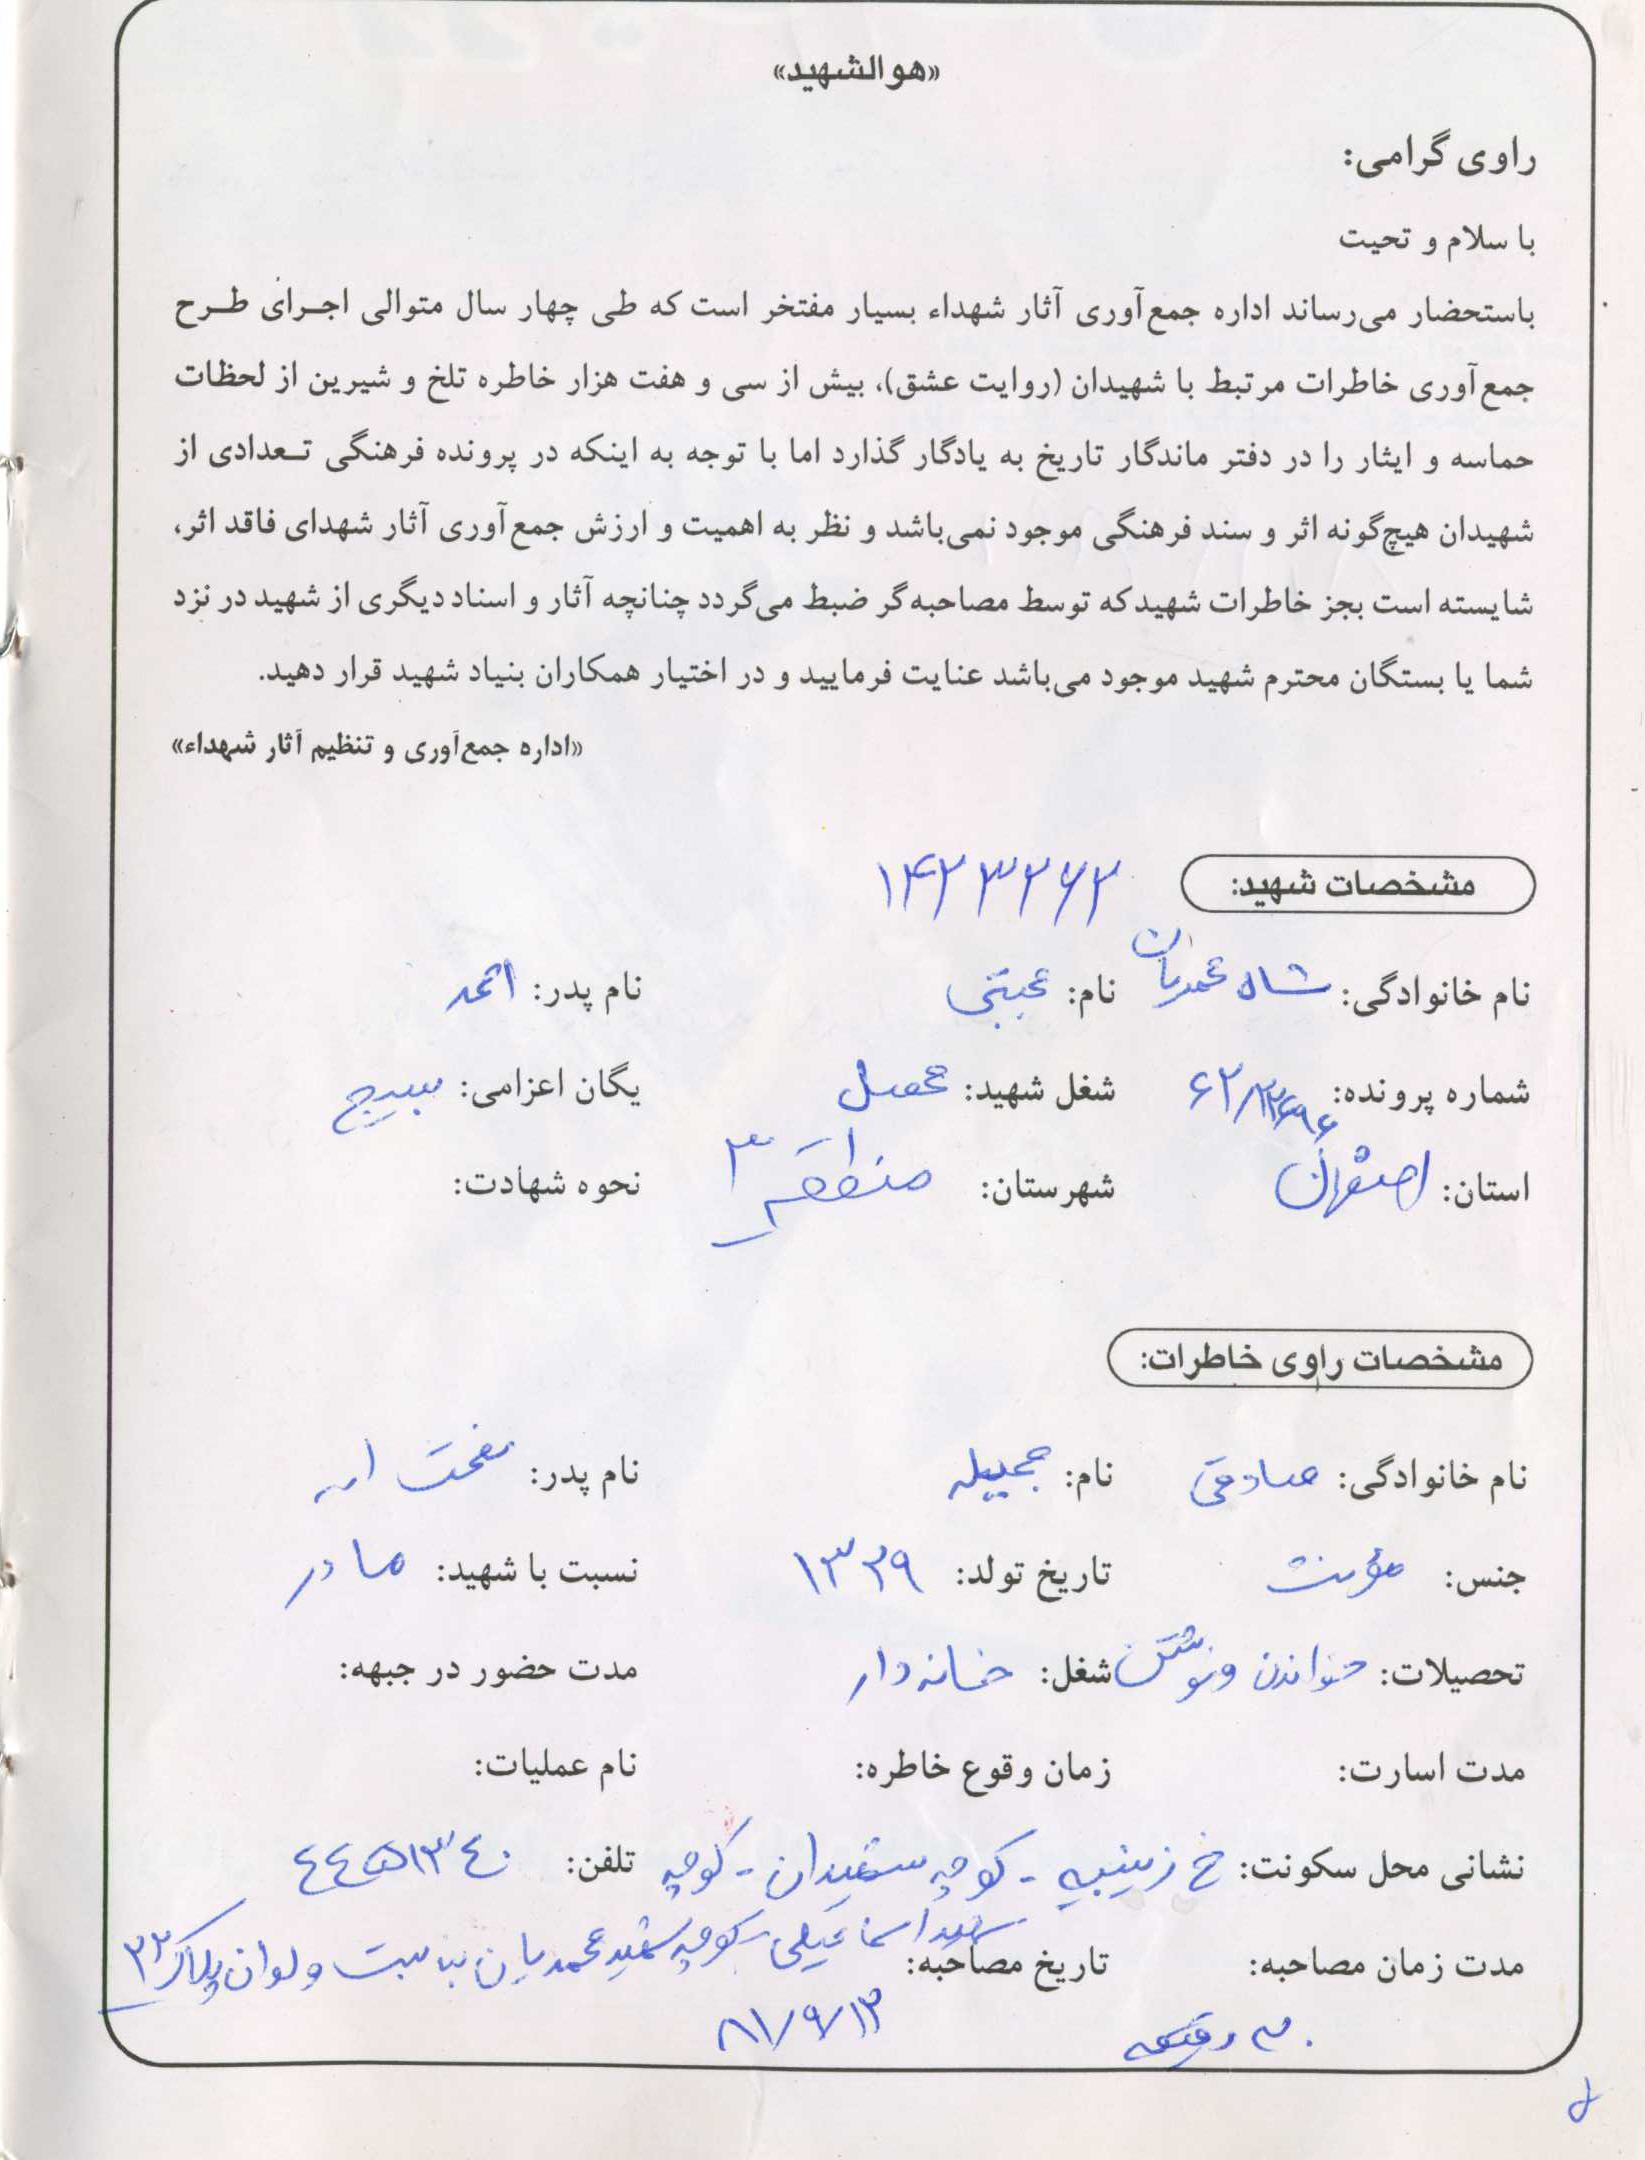 «هوالشهید»
راوی گرامی:
با سلام و تحیت
باستحضار می‌رساند اداره جمع‌آوری آثار شهداء بسیار مفتخر است که طی چهار سال متوالی اجرای طرح
جمع‌آوری خاطرات مرتبط با شهیدان (روایت عشق)، بیش از سی و هفت هزار خاطره تلخ و شیرین از لحظات
حماسه و ایثار را در دفتر ماندگار تاریخ به یادگار گذارد اما با توجه به اینکه در پرونده فرهنگی تعدادی از
شهیدان هیچ‌گونه اثر و سند فرهنگی موجود نمی‌باشد و نظر به اهمیت و ارزش جمع‌آوری آثار شهدای فاقد اثر،
شایسته است بجز خاطرات شهید که توسط مصاحبه‌گر ضبط می‌گردد چنانچه آثار و اسناد دیگری از شهید در نزد
شما یا بستگان محترم شهید موجود می‌باشد عنایت فرمایید و در اختیار همکاران بنیاد شهید قرار دهید.
«اداره جمع‌آوری و تنظیم آثار شهداء»
مشخصات شهید: ۱۴۲۳۲۶۲
نام خانوادگی: شاه محمدیان نام: مجتبی نام پدر: احمد
شماره پرونده: شغل شهید: محصل یگان اعزامی: بسیج
استان: اصفهان شهرستان: منطقه ۳ نحوه شهادت:
مشخصات راوی خاطرات:
نام خانوادگی: صادقی نام: جمیله نام پدر: نعمت اله
جنس: مؤنث تاریخ تولد: ۱۳۲۹ نسبت با شهید: مادر
تحصیلات: خواندن و نوشتن شغل: خانه دار مدت حضور در جبهه:
مدت اسارت: زمان وقوع خاطره: نام عملیات:
نشانی محل سکونت: خ زینبیه - کوچه سفیدان - کوچه تلفن: ۴۴۵۱۳۴۰
شهید اسماعیلی - کوچه شهید محمدیان بن بست پلاک ۳۲
مدت زمان مصاحبه: تاریخ مصاحبه:
۳۰ دقیقه ۸۱/۹/۱۳